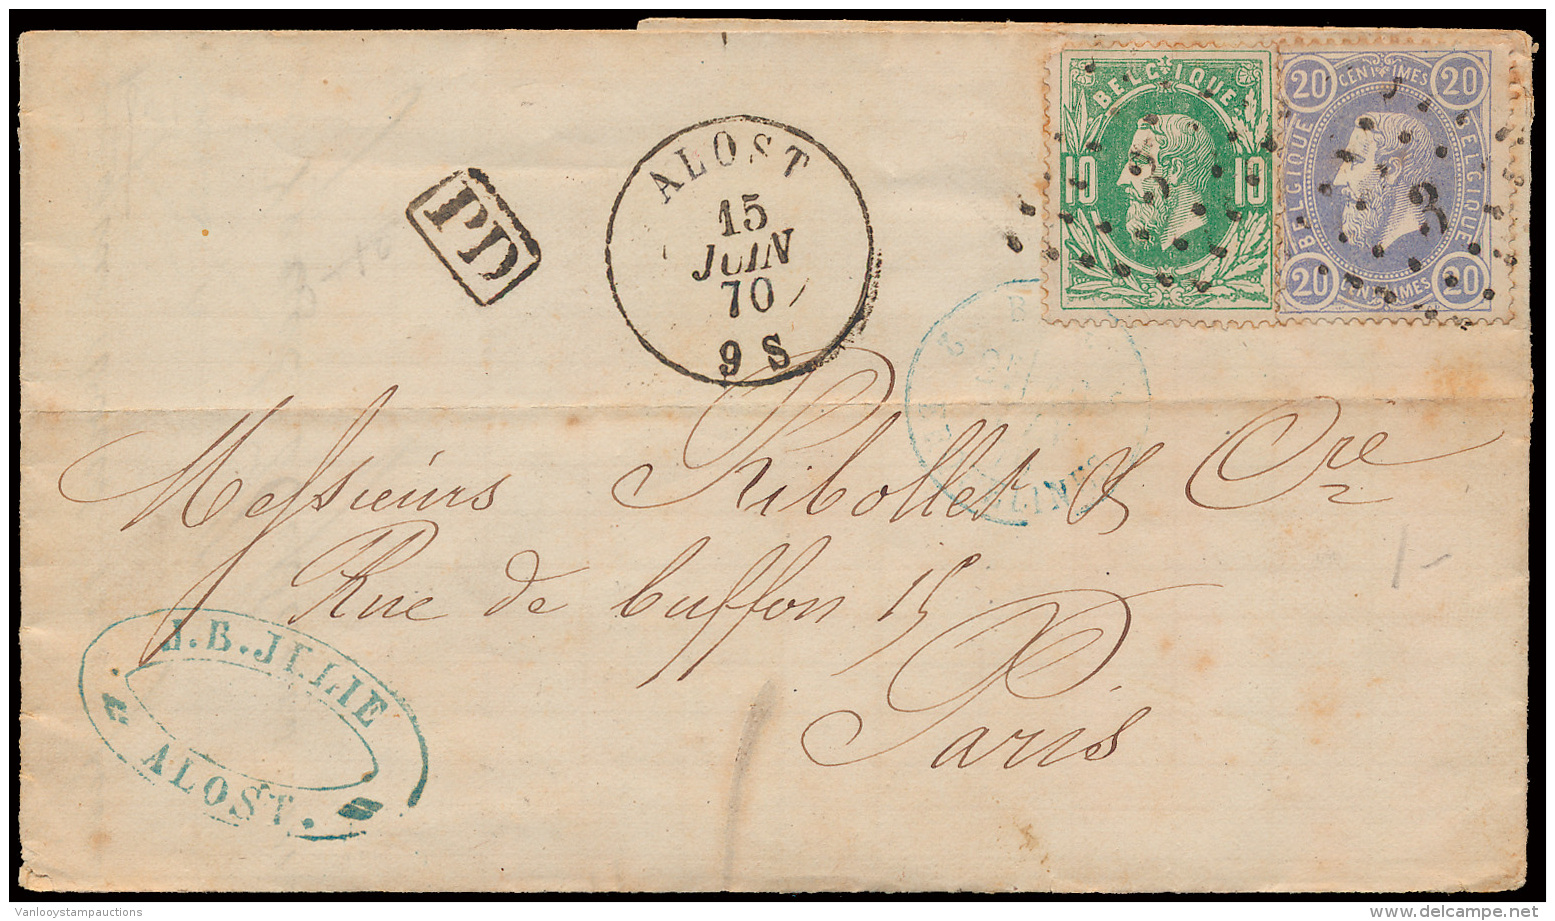 BELGIQUE
10 10
20 CENTIMES 20
BELGIQUE BELGIQUE
20 CENTIMES 20
3
3
PD
ALOST
15
JUIN
70
9 S
Messieurs Ribollet & Cie
Rue de buffon 15
Paris
J.B. JELIE
ALOST.
Vanlooystampauctions
delcampe.net